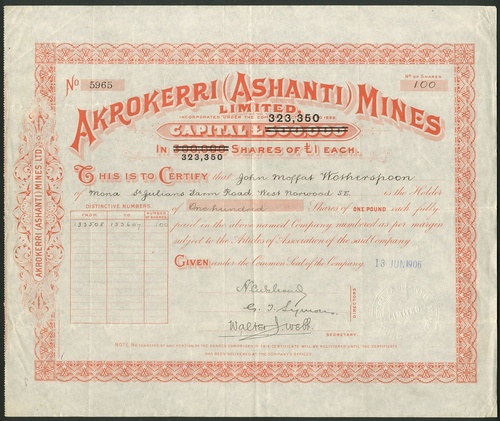 No 5965
No OF SHARES
100
AKROKERRI (ASHANTI) MINES
LIMITED.
INCORPORATED UNDER THE
323,350
CAPITAL £300,000
IN 300,000 SHARES OF £1 EACH.
323,350
THIS IS TO CERTIFY that John Moffat Wotherspoon
of Mona St Julians Farm Road West Norwood S.E. is the Holder
DISTINCTIVE NUMBERS.
FROM TO NUMBER OF SHARES
100
of One hundred Shares of ONE POUND each fully
paid in the above named Company numbered as per margin
subject to the Articles of Association of the said Company.
GIVEN under the Common Seal of the Company,
13 JUN 1906
DIRECTORS.
Walter J Webb
SECRETARY.
NOTE. NO TRANSFER OF ANY PORTION OF THE SHARES COMPRISED IN THIS CERTIFICATE WILL BE REGISTERED UNTIL THE CERTIFICATE
HAS BEEN DELIVERED AT THE COMPANY'S OFFICES.
AKROKERRI (ASHANTI) MINES, LTD.